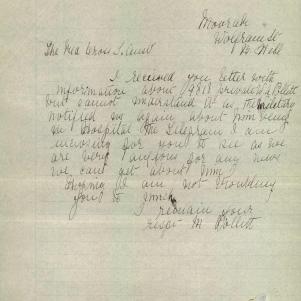 Moorak
Wolfram St
B. Hill
The Red Cross S.
I received you letter with
information about 4818 private Pollitt
but cannot understand it as the Military
notified us again about him being
in Hospital the Telegram I am
inclosing for you to see as we
are very anxious for any news
we can get about him
Hoping I am not troubling
you to much
I remain your
respt M Pollitt